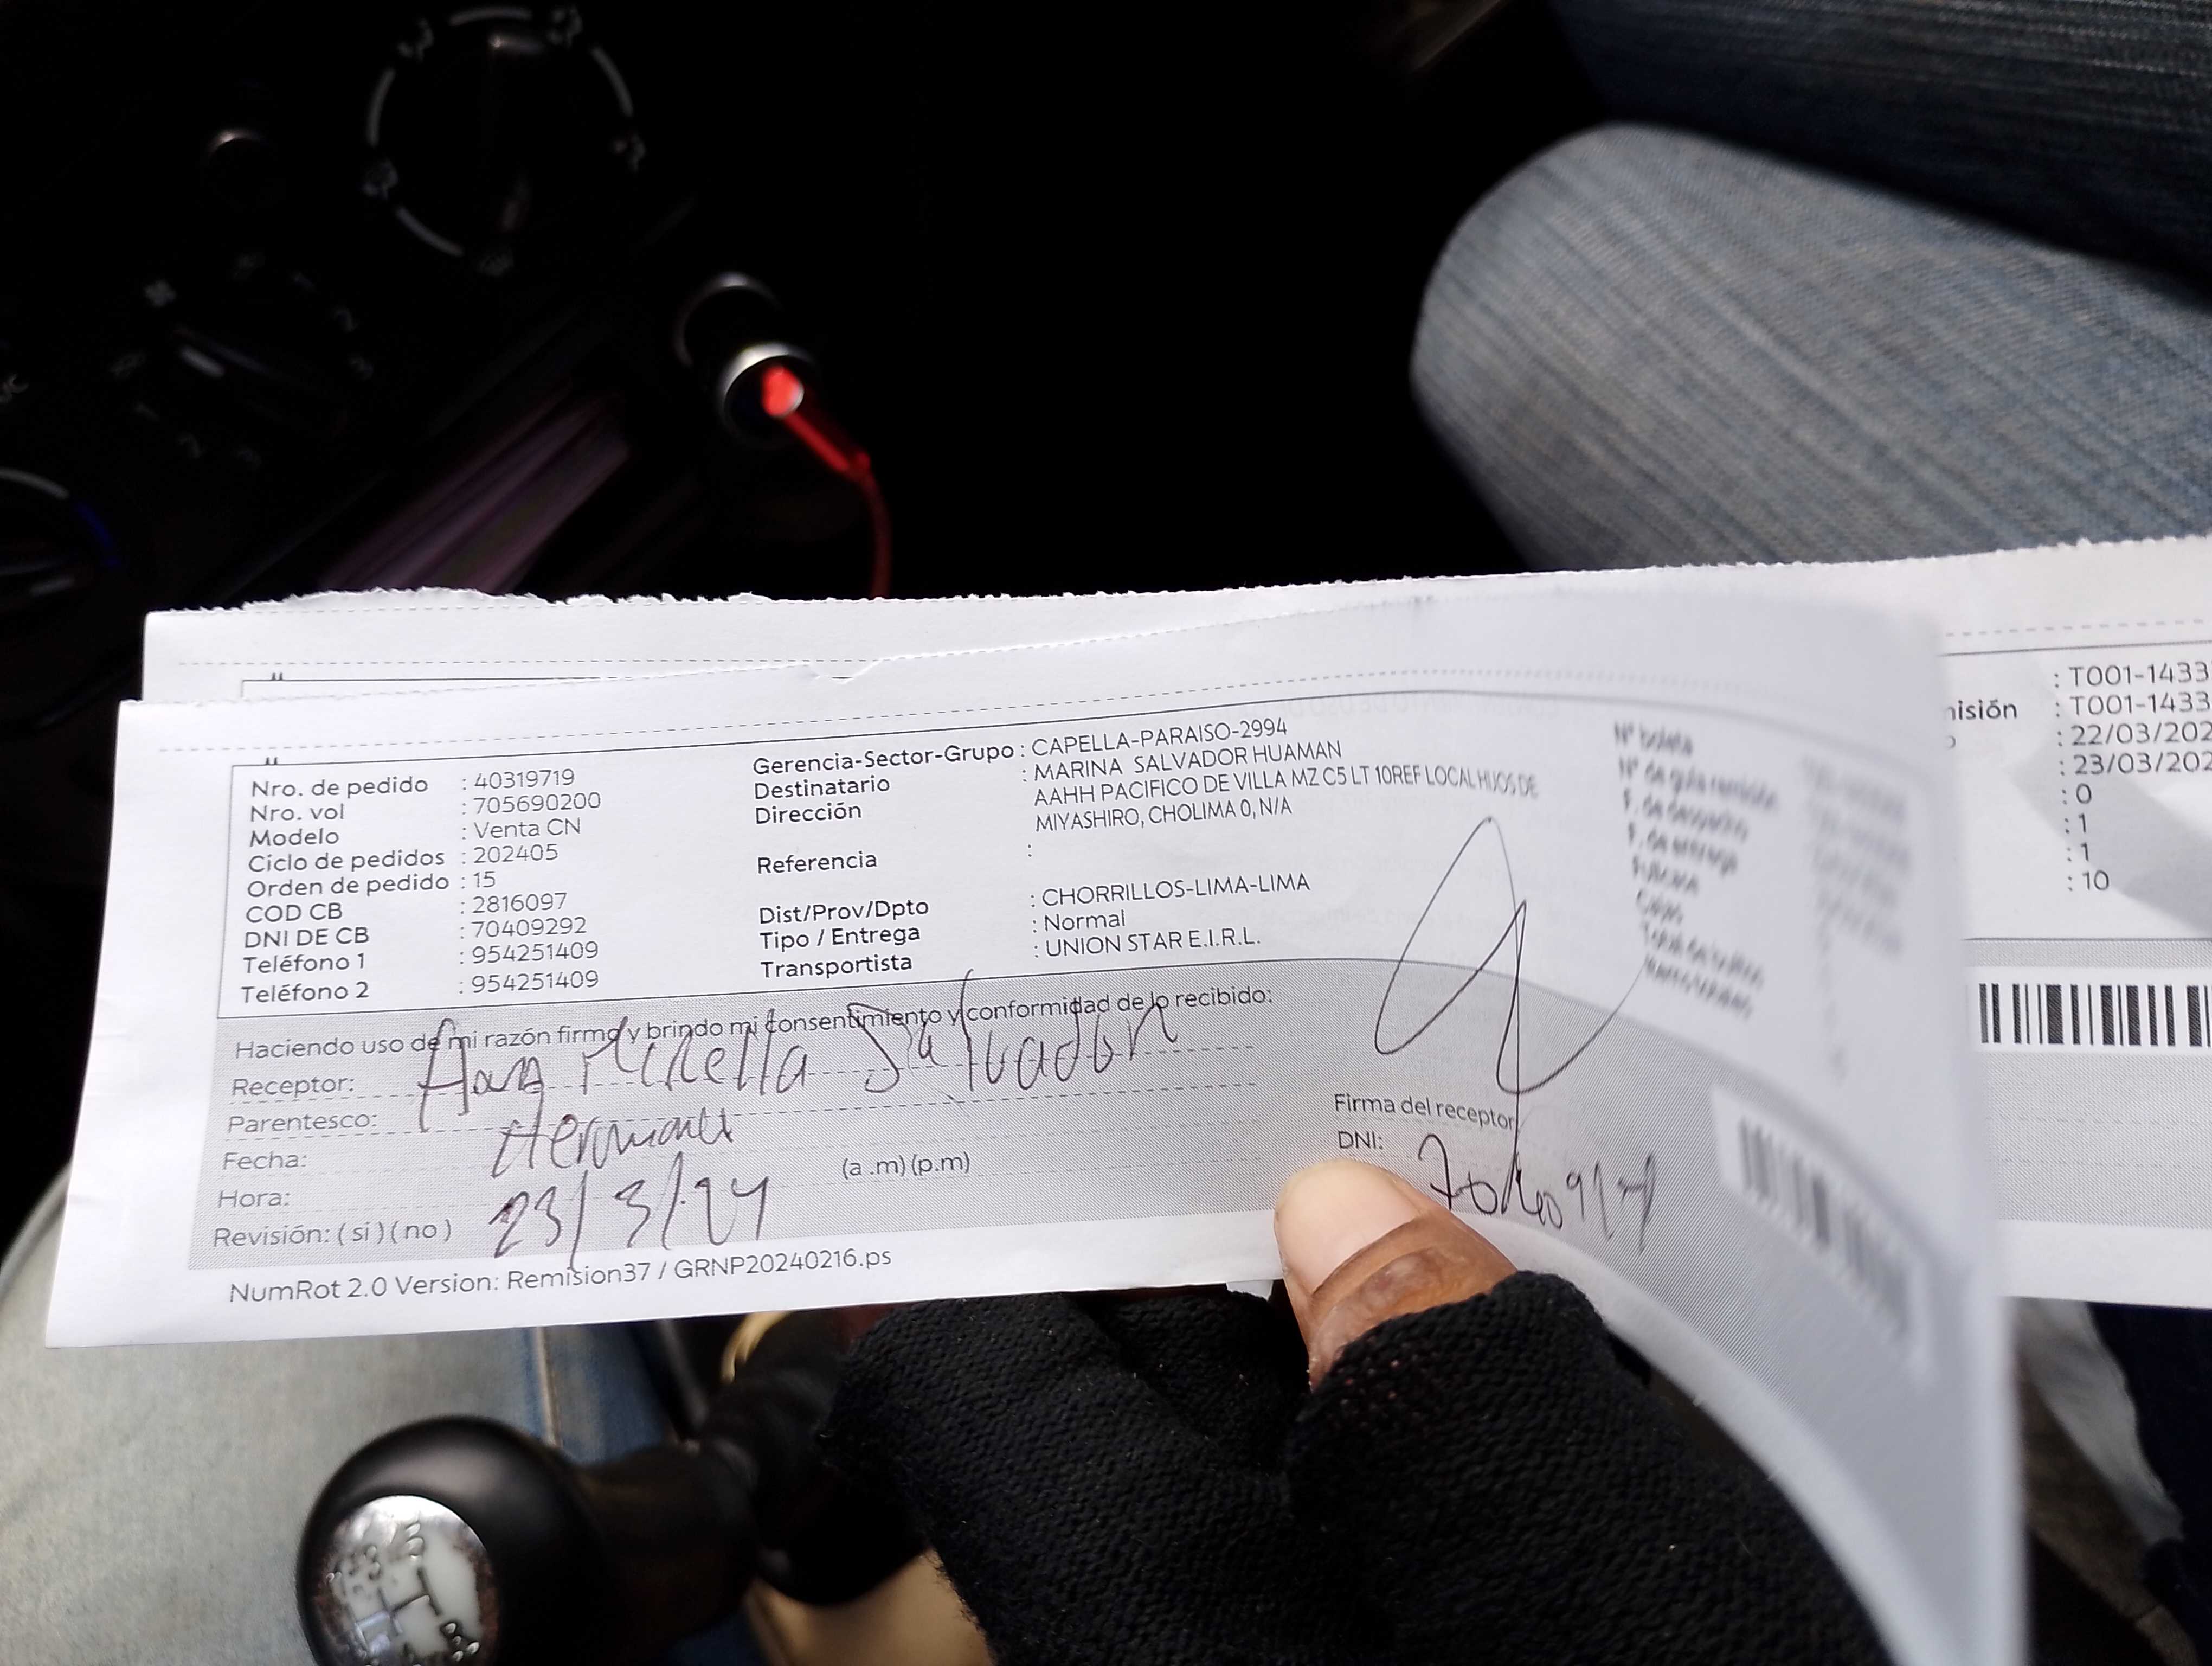 Nro. de pedido : 40319719
Nro. vol : 705690200
Modelo : Venta CN
Ciclo de pedidos : 202405
Orden de pedido : 15
COD CB : 2816097
DNI DE CB : 70409292
Teléfono 1 : 954251409
Teléfono 2 : 954251409
Gerencia-Sector-Grupo : CAPELLA-PARAISO-2994
Destinatario : MARINA SALVADOR HUAMAN
Dirección AAHH PACIFICO DE VILLA MZ C5 LT 10REF LOCAL HIJOS DE
MIYASHIRO, CHOLIMA 0, N/A
Referencia :
Dist/Prov/Dpto : CHORRILLOS-LIMA-LIMA
Tipo / Entrega : Normal
Transportista : UNION STAR E.I.R.L.
Nº boleta
Nº de guía remisión
F. de despacho
F. de entrega
Haciendo uso de mi razón firmo y brindo mi consentimiento y conformidad de lo recibido:
Receptor: Salvador
Parentesco: Hermana
Fecha: 23/3/24
Hora: (a .m) (p.m)
Revisión: ( si ) ( no )
Firma del receptor
DNI:
NumRot 2.0 Version: Remision37 / GRNP20240216.ps
: T001-1433
misión : T001-1433
: 22/03/202
: 23/03/202
: 0
: 1
: 1
: 10